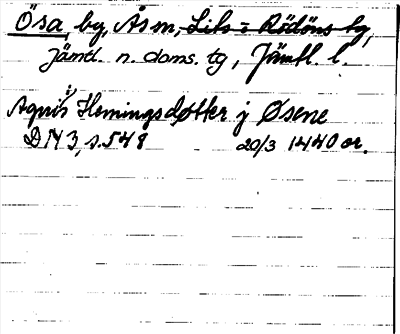 Ösa, by, Ås sn, Lits o Rödöns tg,
Jämtl. n. doms. tg, Jämtl. l.
Agnis Hemingsdøtter j Øsene
DN 3, s. 548 20/3 1440 or.